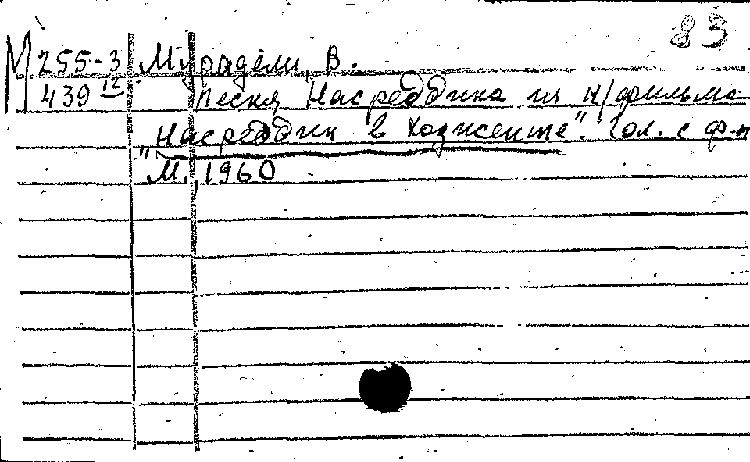 83
М 255-3 Мурадели, В.
439 12 Песня Насреддина из к/фильма
"Насреддин в Ходженте". Гол. с ф-п
М., 1960